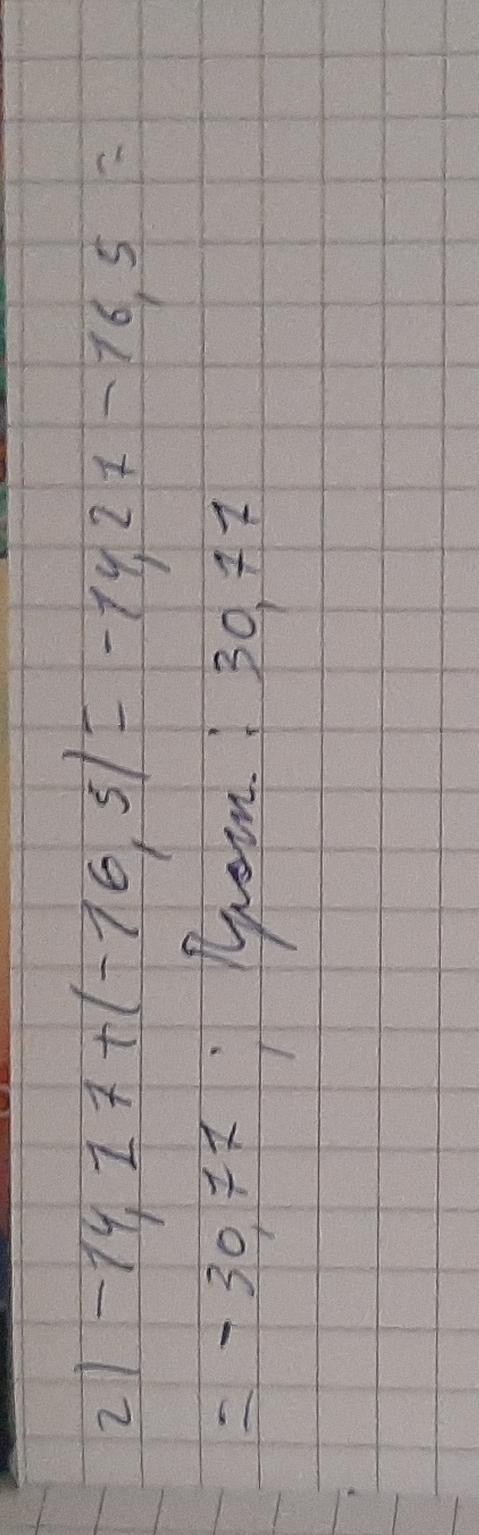 2) -14,27 + (-16,5) = -14,27 - 16,5 =
= -30,77 ; Прот. : 30,77